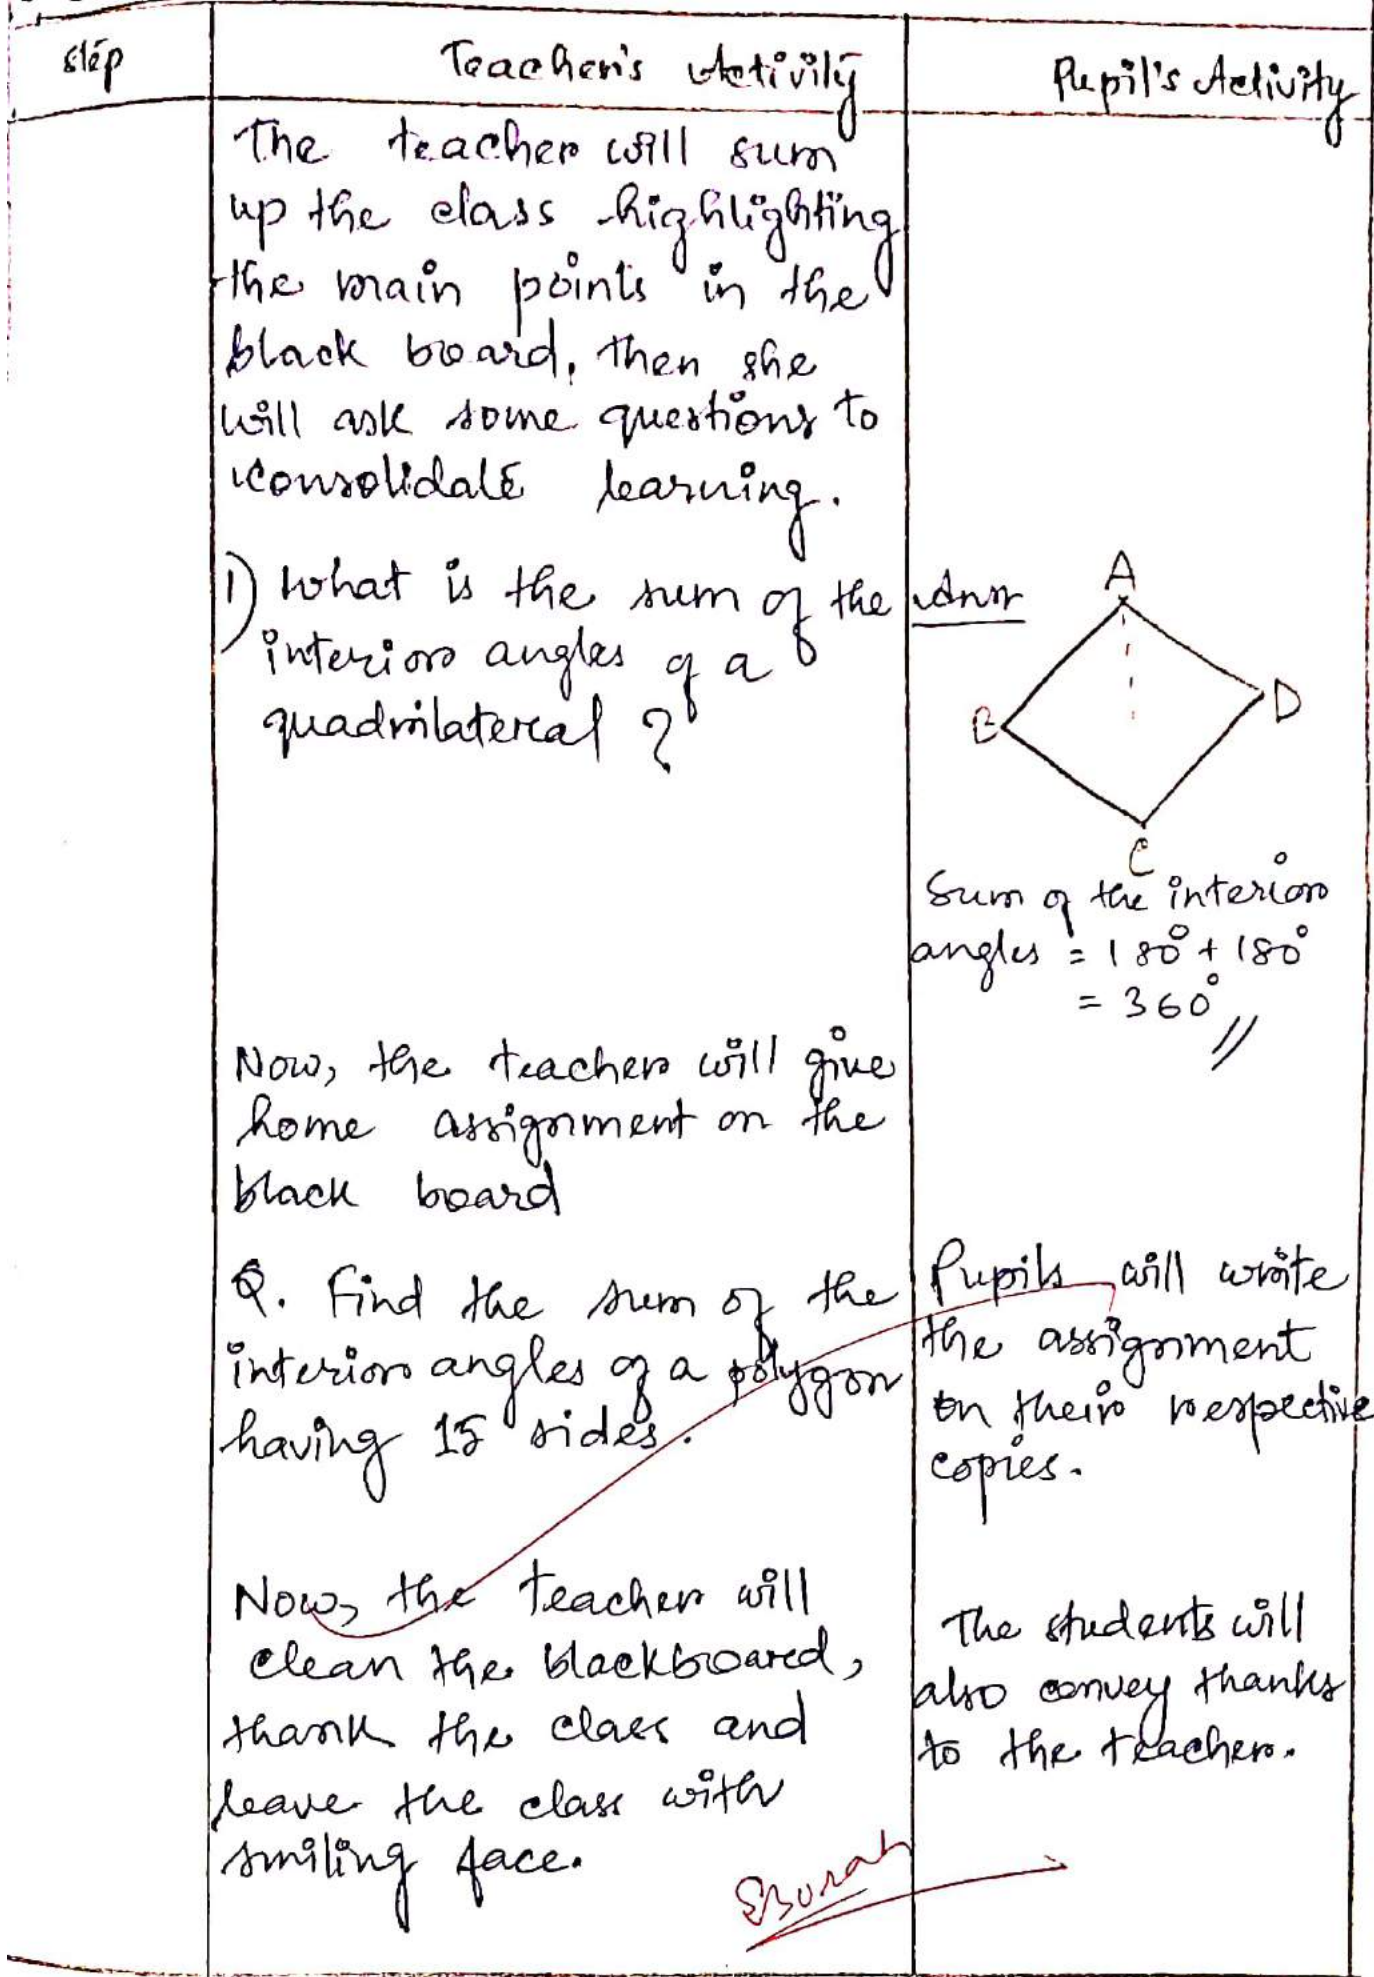 Step
Teacher's Activity
Pupil's Activity
The teacher will sum
up the class highlighting
the main points in the
black board, then she
will ask some questions to
consolidate learning.
1) What is the sum of the
interior angles of a
quadrilateral ?
Ans
A
B
D
C
Sum of the interior
angles = 180° + 180°
= 360° //
Now, the teacher will give
home assignment on the
black board
Q. Find the sum of the
interior angles of a polygon
having 15 sides.
Pupils will write
the assignment
on their respective
copies.
Now, the teacher will
clean the blackboared,
thank the class and
leave the class with
smiling face.
The students will
also convey thanks
to the teacher.
SBorah